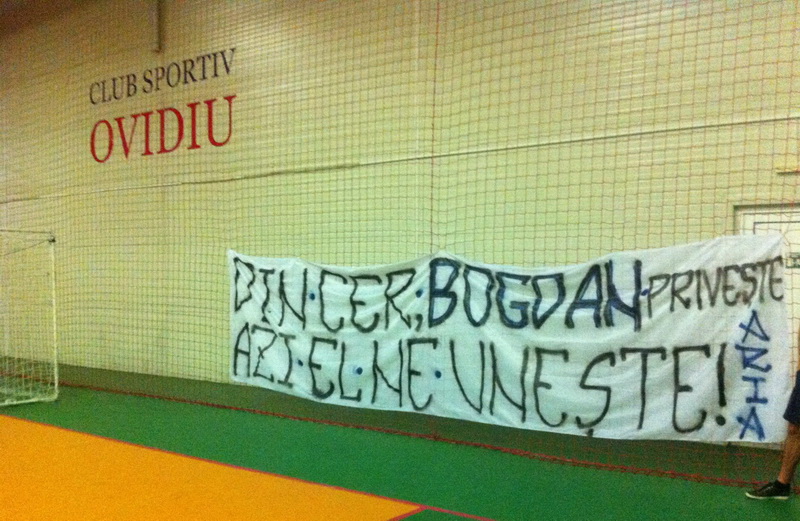 CLUB SPORTIV
OVIDIU
DIN·CER;BOGDAN·PRIVEȘTE
AZI·EL·NE·UNEȘTE!
ARIA